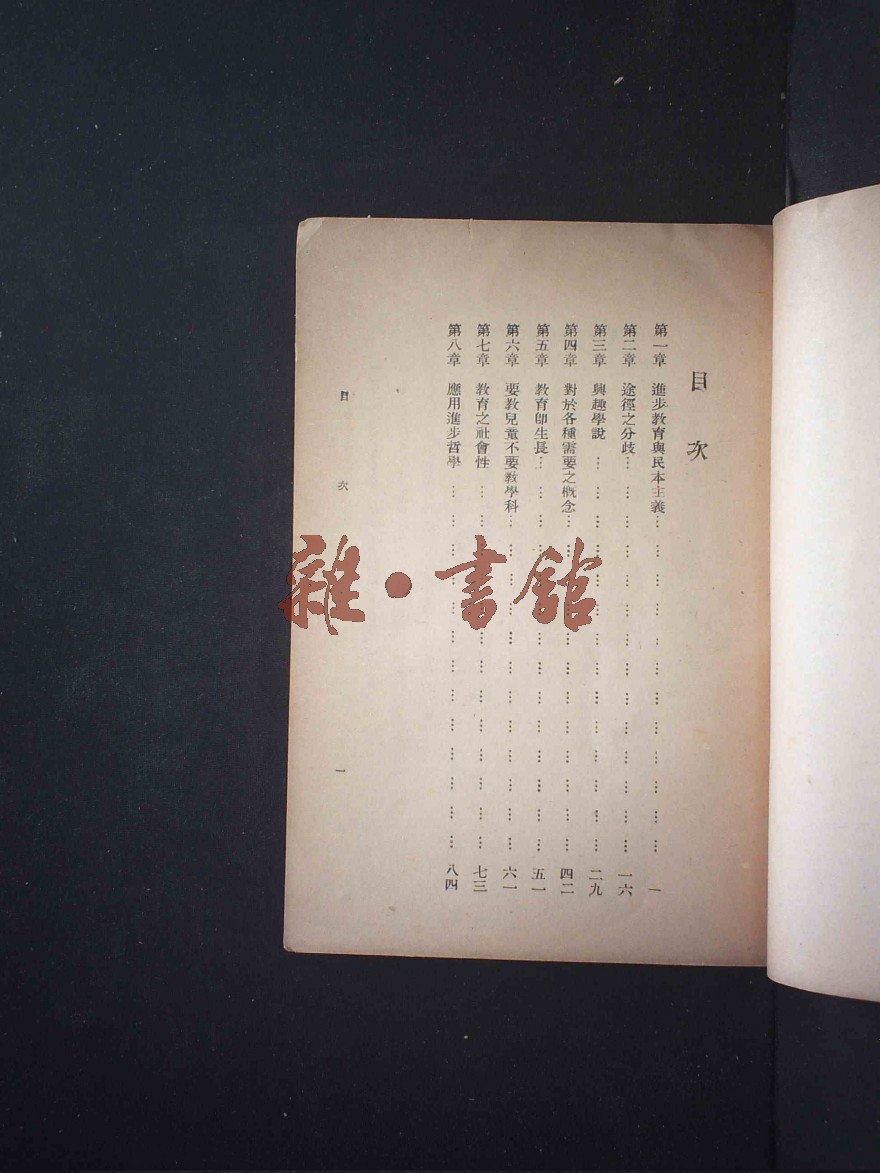 目次
第一章 進步教育與民本主義………………………………一
第二章 途徑之分歧………………………………一六
第三章 興趣學說………………………………二九
第四章 對於各種需要之概念………………………………四二
第五章 教育卽生長………………………………五一
第六章 要教兒童不要教學科………………………………六一
第七章 教育之社會性………………………………七三
第八章 應用進步哲學………………………………八四
目次 一
雜·書館